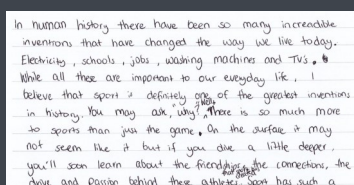 In human history there have been so many increadible
inventions that have changed the way we live today.
Electricity, schools, jobs, washing machines and TVs.
While all these are important to our everyday life, I
believe that sport is definitely one of the greatest inventions
in history. You may ask, "why?" Well, There is so much more
to sports than just the game. On the surface it may
not seem like it but if you dive a little deeper,
you'll soon learn about the friendships, the connections, the
drive and passion behind these athletes. Sport has such a